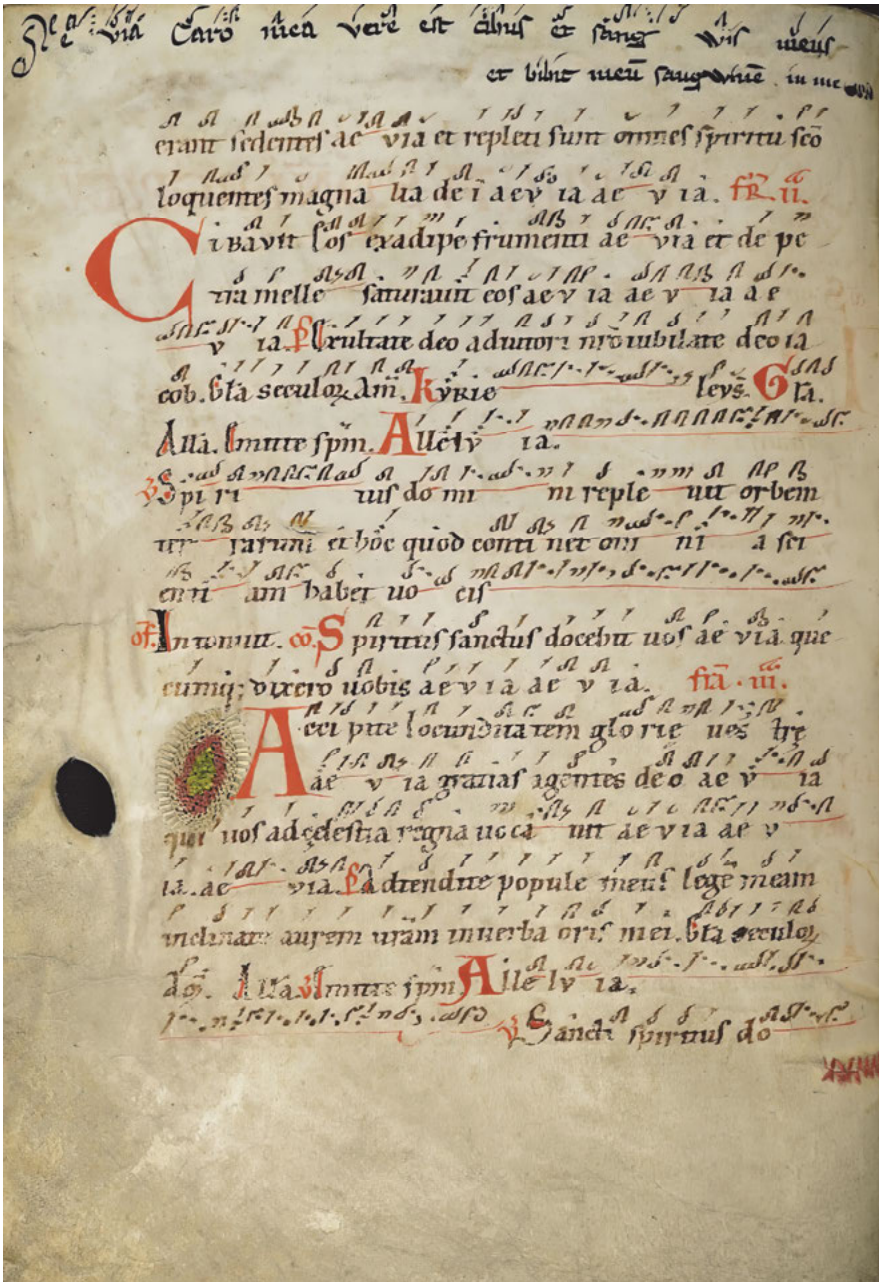 via Caro mea vere est cibus et sang uis meus
et bibit meū sanguinē in me
erant sedentes ae via et repleti sunt omnes spiritu sc̄o
loquentes magna lia dei aev ia ae v ia. fr̄. ii.
Cibavit eos exadipe frumenti ae via et de pe
tra melle saturavit eos ae v ia ae v ia a e
v ia. Ps Exultate deo adiutori nr̄o iubilate deo ia
cob. Gła seculoꝝ Am̄. kyrie leys̄. Gła.
Alla. Emitte spm̄. Allelv ia.
V Spi ri tus do mi ni reple uit orbem
ter rarum et hoc quod conti net om ni a sci
enti am habet uo cis
of. Intonuit. co. Spiritus sanctus docebit uos ae via. que
cumq; dixero uobis aevia ae v ia. fr̄a. iii.
Accipite Iocunditatem glorie ues trę
ae v ia gratias agentes deo ae v ia
qui uos ad cęlestia regna uoca uit ae v ia ae v
ia. ae via. Ps Adtendite popule meus legē meam
inclinate aurem uram in uerba oris mei. Gła seculoꝝ
Alła. V Emitte spm̄ Alle lv ia.
V Sancti spiritus do